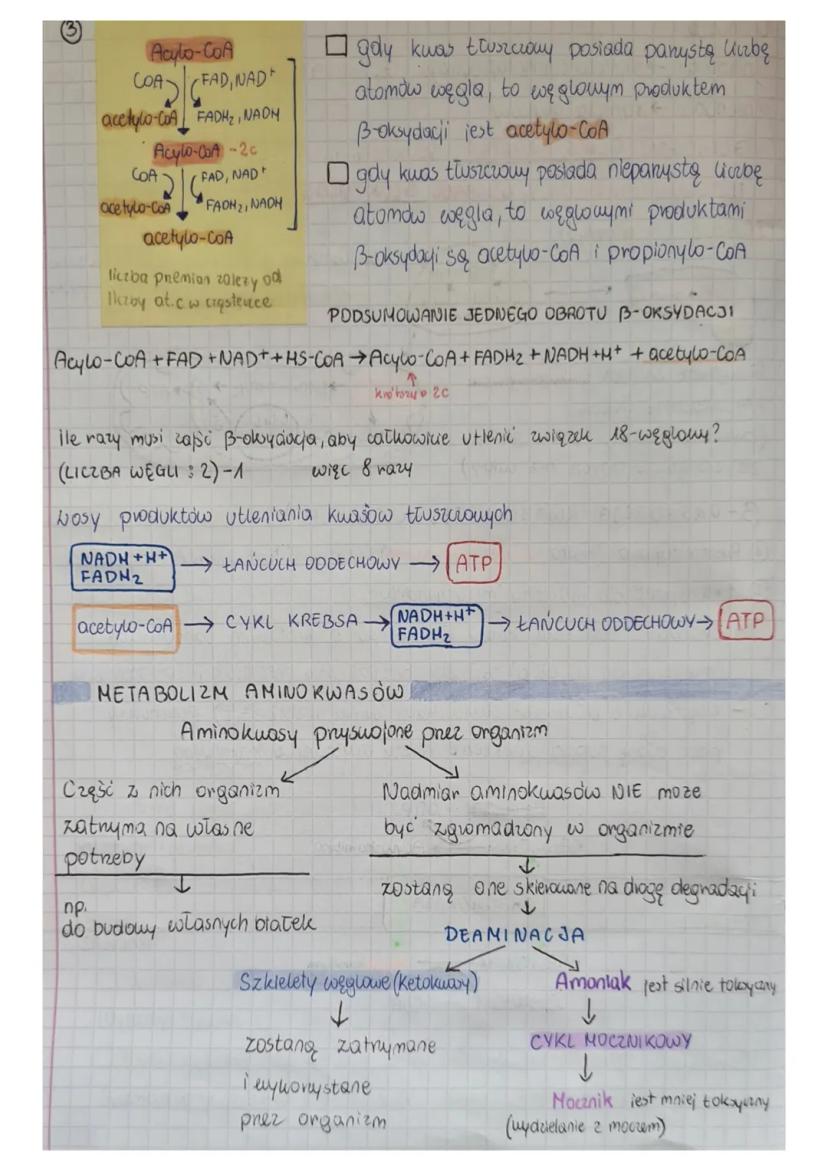 3
Acylo-CoA
COA FAD, NAD+
acetylo-CoA FADH2, NADH
Acylo-CoA -2c
COA FAD, NAD+
acetylo-CoA FADH2, NADH
acetylo-CoA
liczba przemian zależy od
liczby at. c w cząsteczce
gdy kwas tłuszczowy posiada parzystą liczbę
atomów węgla, to węglowym produktem
β-oksydacji jest acetylo-CoA
gdy kwas tłuszczowy posiada nieparzystą liczbę
atomów węgla, to węglowymi produktami
β-oksydacji są acetylo-CoA i propionylo-CoA
PODSUMOWANIE JEDNEGO OBROTU β-OKSYDACJI
Acylo-CoA + FAD + NAD+ + HS-CoA → Acylo-CoA + FADH2 + NADH + H+ + acetylo-CoA
↑
krótszy o 2C
ile razy musi zajść β-oksydacja, aby całkowicie utlenić związek 18-węglowy?
(LICZBA WĘGLI : 2) -1 więc 8 razy
Losy produktów utleniania kwasów tłuszczowych
NADH + H+
FADH2 → ŁAŃCUCH ODDECHOWY → ATP
acetylo-CoA → CYKL KREBSA → NADH+H+
FADH2 → ŁAŃCUCH ODDECHOWY → ATP
METABOLIZM AMINOKWASÓW
Aminokwasy przyswojone przez organizm
Część z nich organizm
zatrzyma na własne
potrzeby
↓
np.
do budowy własnych białek
Nadmiar aminokwasów NIE może
być zgromadzony w organizmie
↓
zostaną one skierowane na drogę degradacji
↓
DEAMINACJA
Szkielety węglowe (ketokwasy)
↓
zostaną zatrzymane
i wykorzystane
przez organizm
Amoniak jest silnie toksyczny
↓
CYKL MOCZNIKOWY
↓
Mocznik jest mniej toksyczny
(wydzielanie z moczem)